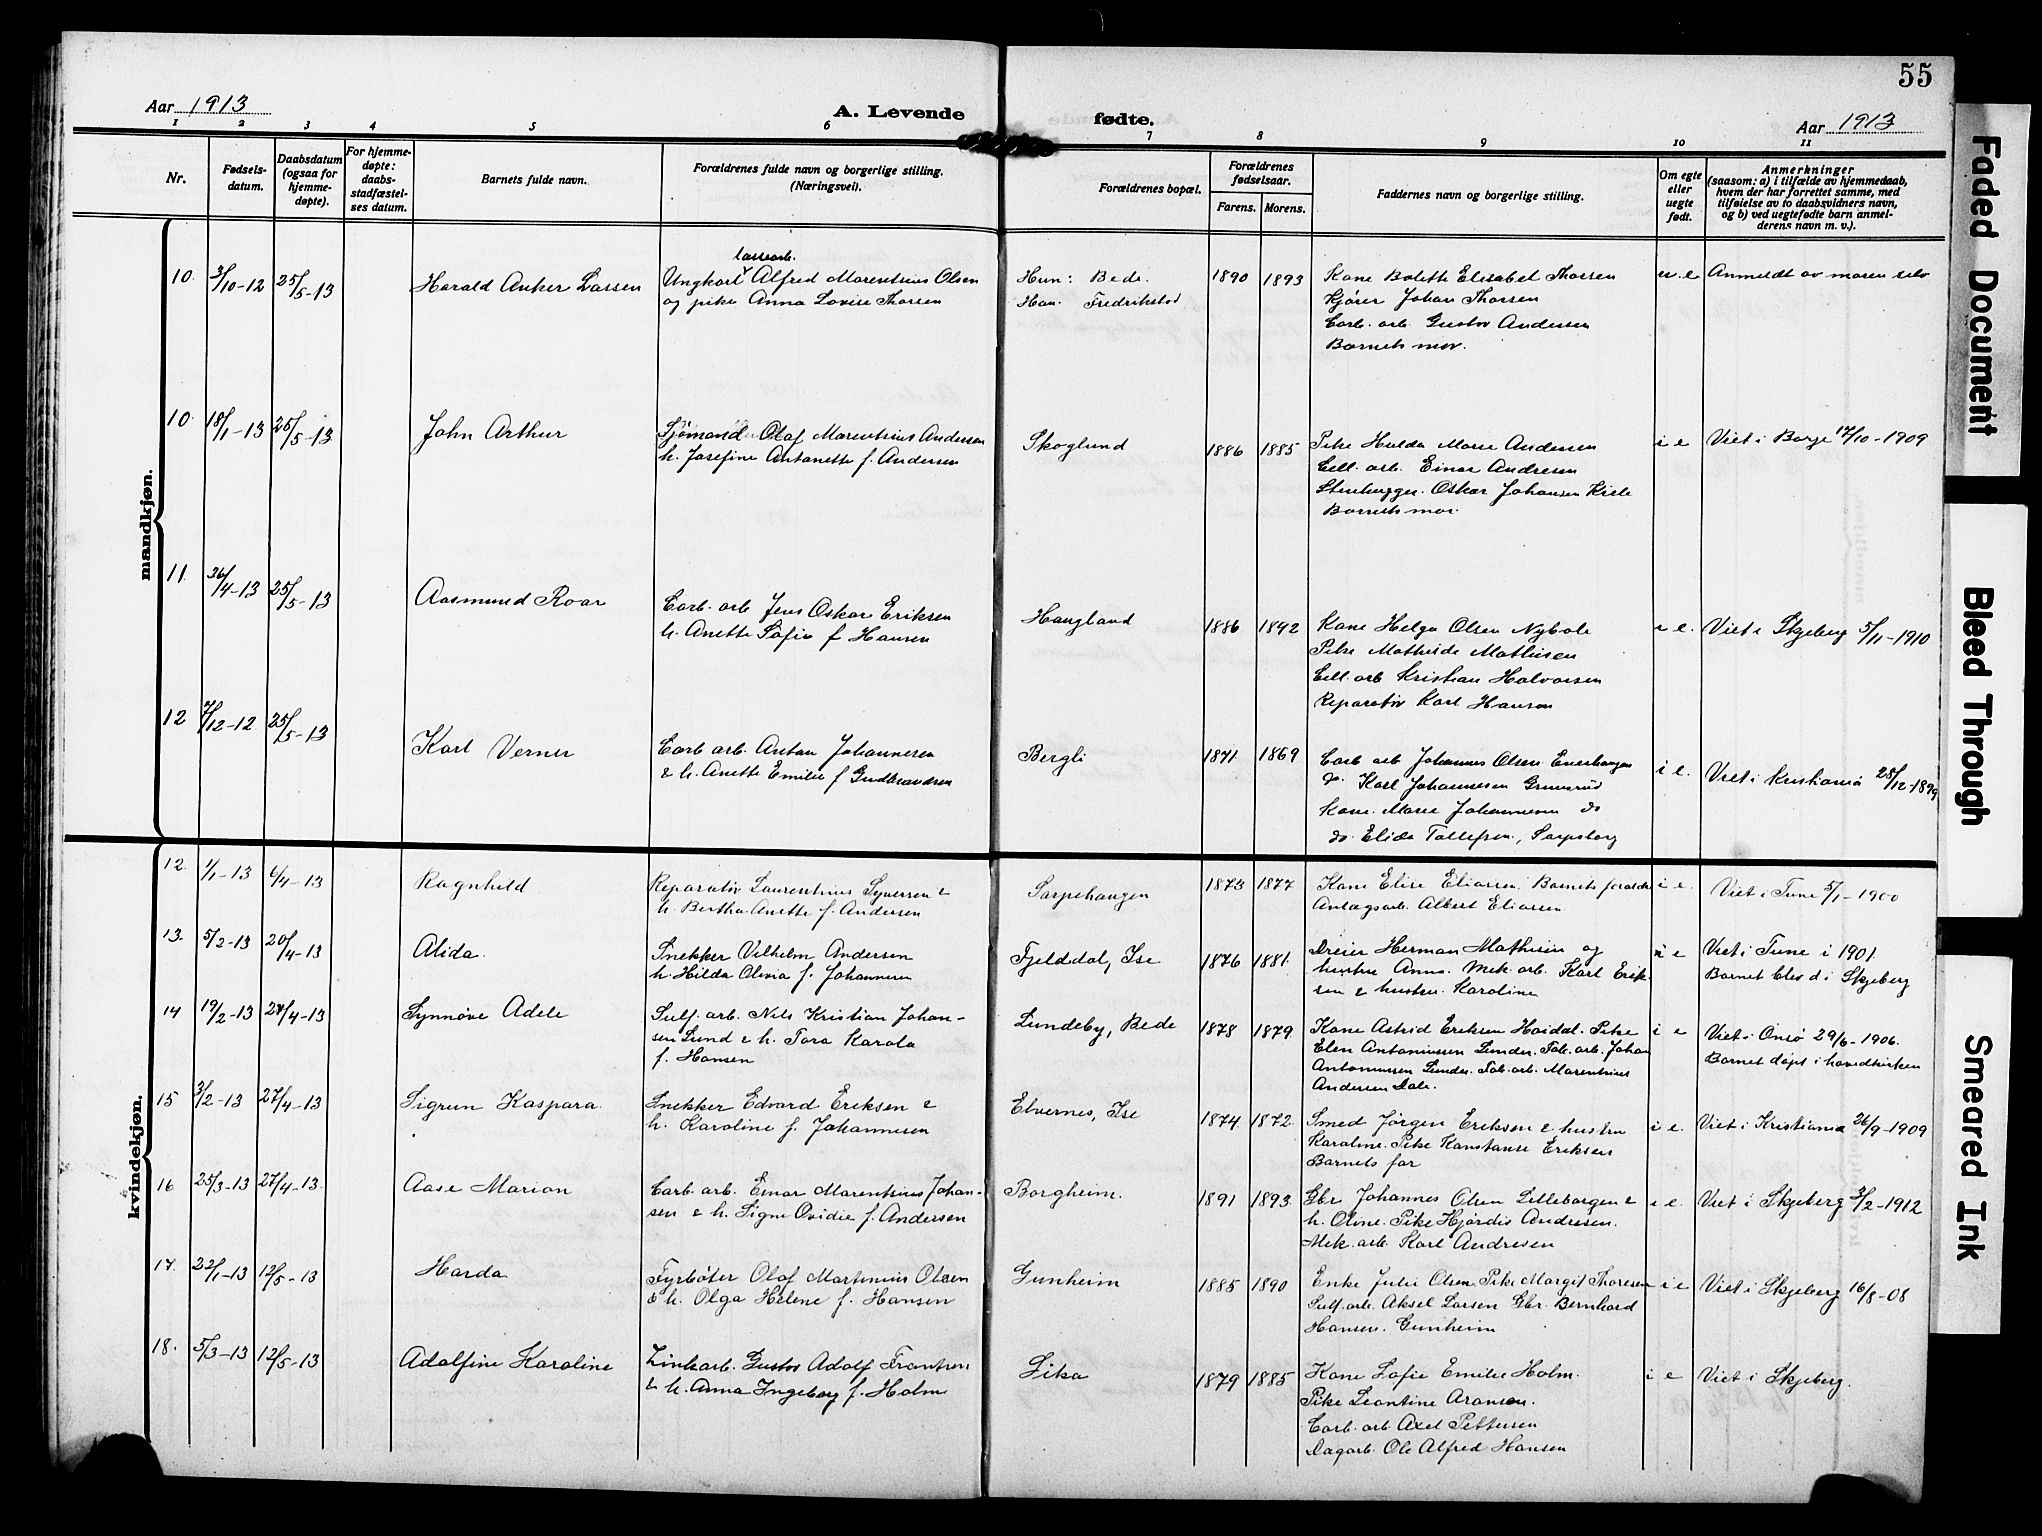 55
Aar 1913
A. Levende
fødte.
Aar 1913
1 2 3 4 5 6 7 8 9 10 11
Nr.
Fødsels-
datum.
Daabsdatum
(ogsaa for
hjemme-
døpte).
For hjemme-
døpte:
daabs-
stadfæstel-
ses datum.
Barnets fulde navn.
Forældrenes fulde navn og borgerlige stilling.
(Næringsvei).
Forældrenes bopæl.
Forældrenes
fødselsaar.
Farens. Morens.
Faddernes navn og borgerlige stilling.
Om egte
eller
uegte
født.
Anmerkninger
(saasom: a) i tilfælde av hjemmedaab,
hvem der har forrettet samme, med
tilføielse av to daabsvidners navn,
og b) ved uegtefødte barn anmel-
derens navn m. v.).
mandkjøn.
10. 3/10-12 25/5-13
Harald Anker Larsen
Ungkarl Alfred Marentsius Olsen
og pike Anna Lovise Thorsen
Hun: Bede.
Han. Fredrikstad
1890 1893
Kone Bolette Elisabet Thorsen
Kjører Johan Thorsen
Carb. arb. Gustav Andersen
Barnets mor.
u. e
Anmeldt av moren selv
10. 18/1-13 25/5-13
John Arthur
Sjømand Olaf Marentsius Andersen
h. Josefine Antonette f. Andersen
Skoglund
1886 1885
Pike Hulda Marie Andersen
Cell. arb. Einar Andresen
Stenhugger. Oskar Johansen
Barnets mor.
i e
Viet i Borge 17/10-1909
11. /4-13 25/5-13
Aasmund Roar
Carb. arb Jens Oskar Eriksen
h. Anette Sofie f Hansen
Haugland
1886
Kone Helga Olsen Nybole
Pike Mathilde Mathisen
Cell. arb Kristian Halvorsen
Reparatør Karl Hansen
i e.
Viet i Skjeberg 5/11-1910
12 7/12-12 25/5-13
Karl Verner
Carb arb. Anton Johannesen
& h. Anette Emilie f Gudbrandsen
Bergli
1871 1869
Carb arb Johannes Olsen
do. Karl Johannesen Grimsrud
Kone. Marie Johannesen do
do. Elida Tollefsen, Sarpsborg
i e.
Viet i Kristiania 25/12-1899
kvindekjøn.
12. 1/1-13 6/4-13
Ragnhild
Reparatør Laurentsius Syversen &
h. Bertha Anette f. Andersen
Sarpehaugen
1873 1877
Kone Elise Eliassen. Barnets foraldre
Anlægsarb. Albert Eliassen
i e.
Viet i Tune 5/1-1900
13. 5/2-13 20/4-13
Alida.
Snekker Vilhelm Andersen
h. Hilda Olivia f. Johannesen
Fjelddal, Ise
1876 1881.
Dreier Herman Mathisen og
hustru Anna. Mek. arb. Karl Erik-
sen & hustru. Karoline
i e
Viet i Tune i 1901.
Barnet blev d i Skjeberg
14 19/2-13 27/4-13
Synnøve Adele
Sulf. arb. Nils Kristian Johan-
sen Lund & h. Tora Karola
f. Hansen
Lundeby, Bede
1878 1879.
Kone Astrid Eriksen Hoidal. Pike
Elen Antoniussen Lunder. Fab. arb. Johan
Antoniussen Lunder. Fab. arb. Marentsius
Andersen Dale.
i e
Viet i Onsø 29/6-1906.
Barnet døpt i hovedkirken
15 3/2-13 27/4-13
Sigrun Kaspara.
Snekker Edvard Eriksen &
h. Karoline f. Johannesen
Elvernes, Ise
1874 1872.
Smed Jørgen Eriksen & hustru
Karoline. Pike Konstanse Eriksen
Barnets far
i e.
Viet i Kristiania 26/9-1909
16 25/3-13 27/4-13.
Aase Marion
Carb. arb. Einar Marentsius Johan-
sen & h. Signe Ovidie f. Andersen
Borgheim.
1891 1893.
Gbr. Johannes Olsen Lilleborgen &
h. Oline. Pike Hjørdis Andresen.
Mek. arb. Karl Andresen
i e.
Viet i Skjeberg 3/2-1912
17. 22/1-13 12/5-13
Harda
Fyrbøter Olaf Martinius Olsen
& h. Olga Helene f. Hansen
Gunheim
1885 1890
Enke Julie Olsen. Pike Margit Thoresen
Sulf. arb. Aksel Larsen Gbr. Bernhard
Hansen. Gunheim
i e
Viet i Skjeberg 16/8-08
18. 5/3-13 12/5-13
Adolfine Karoline
Zinkarb. Gustav Adolf Frantzen
& h. Anna Ingeborg f. Holm
Lika
1879 1885
Kone Sofie Emilie Holm.
Pike Leontine Aronsen.
Carb. arb Axel Pettersen
Dagarb. Ole Alfred Hansen
i e
Viet i Skjeberg.
Faded Document
Bleed Through
Smeared Ink